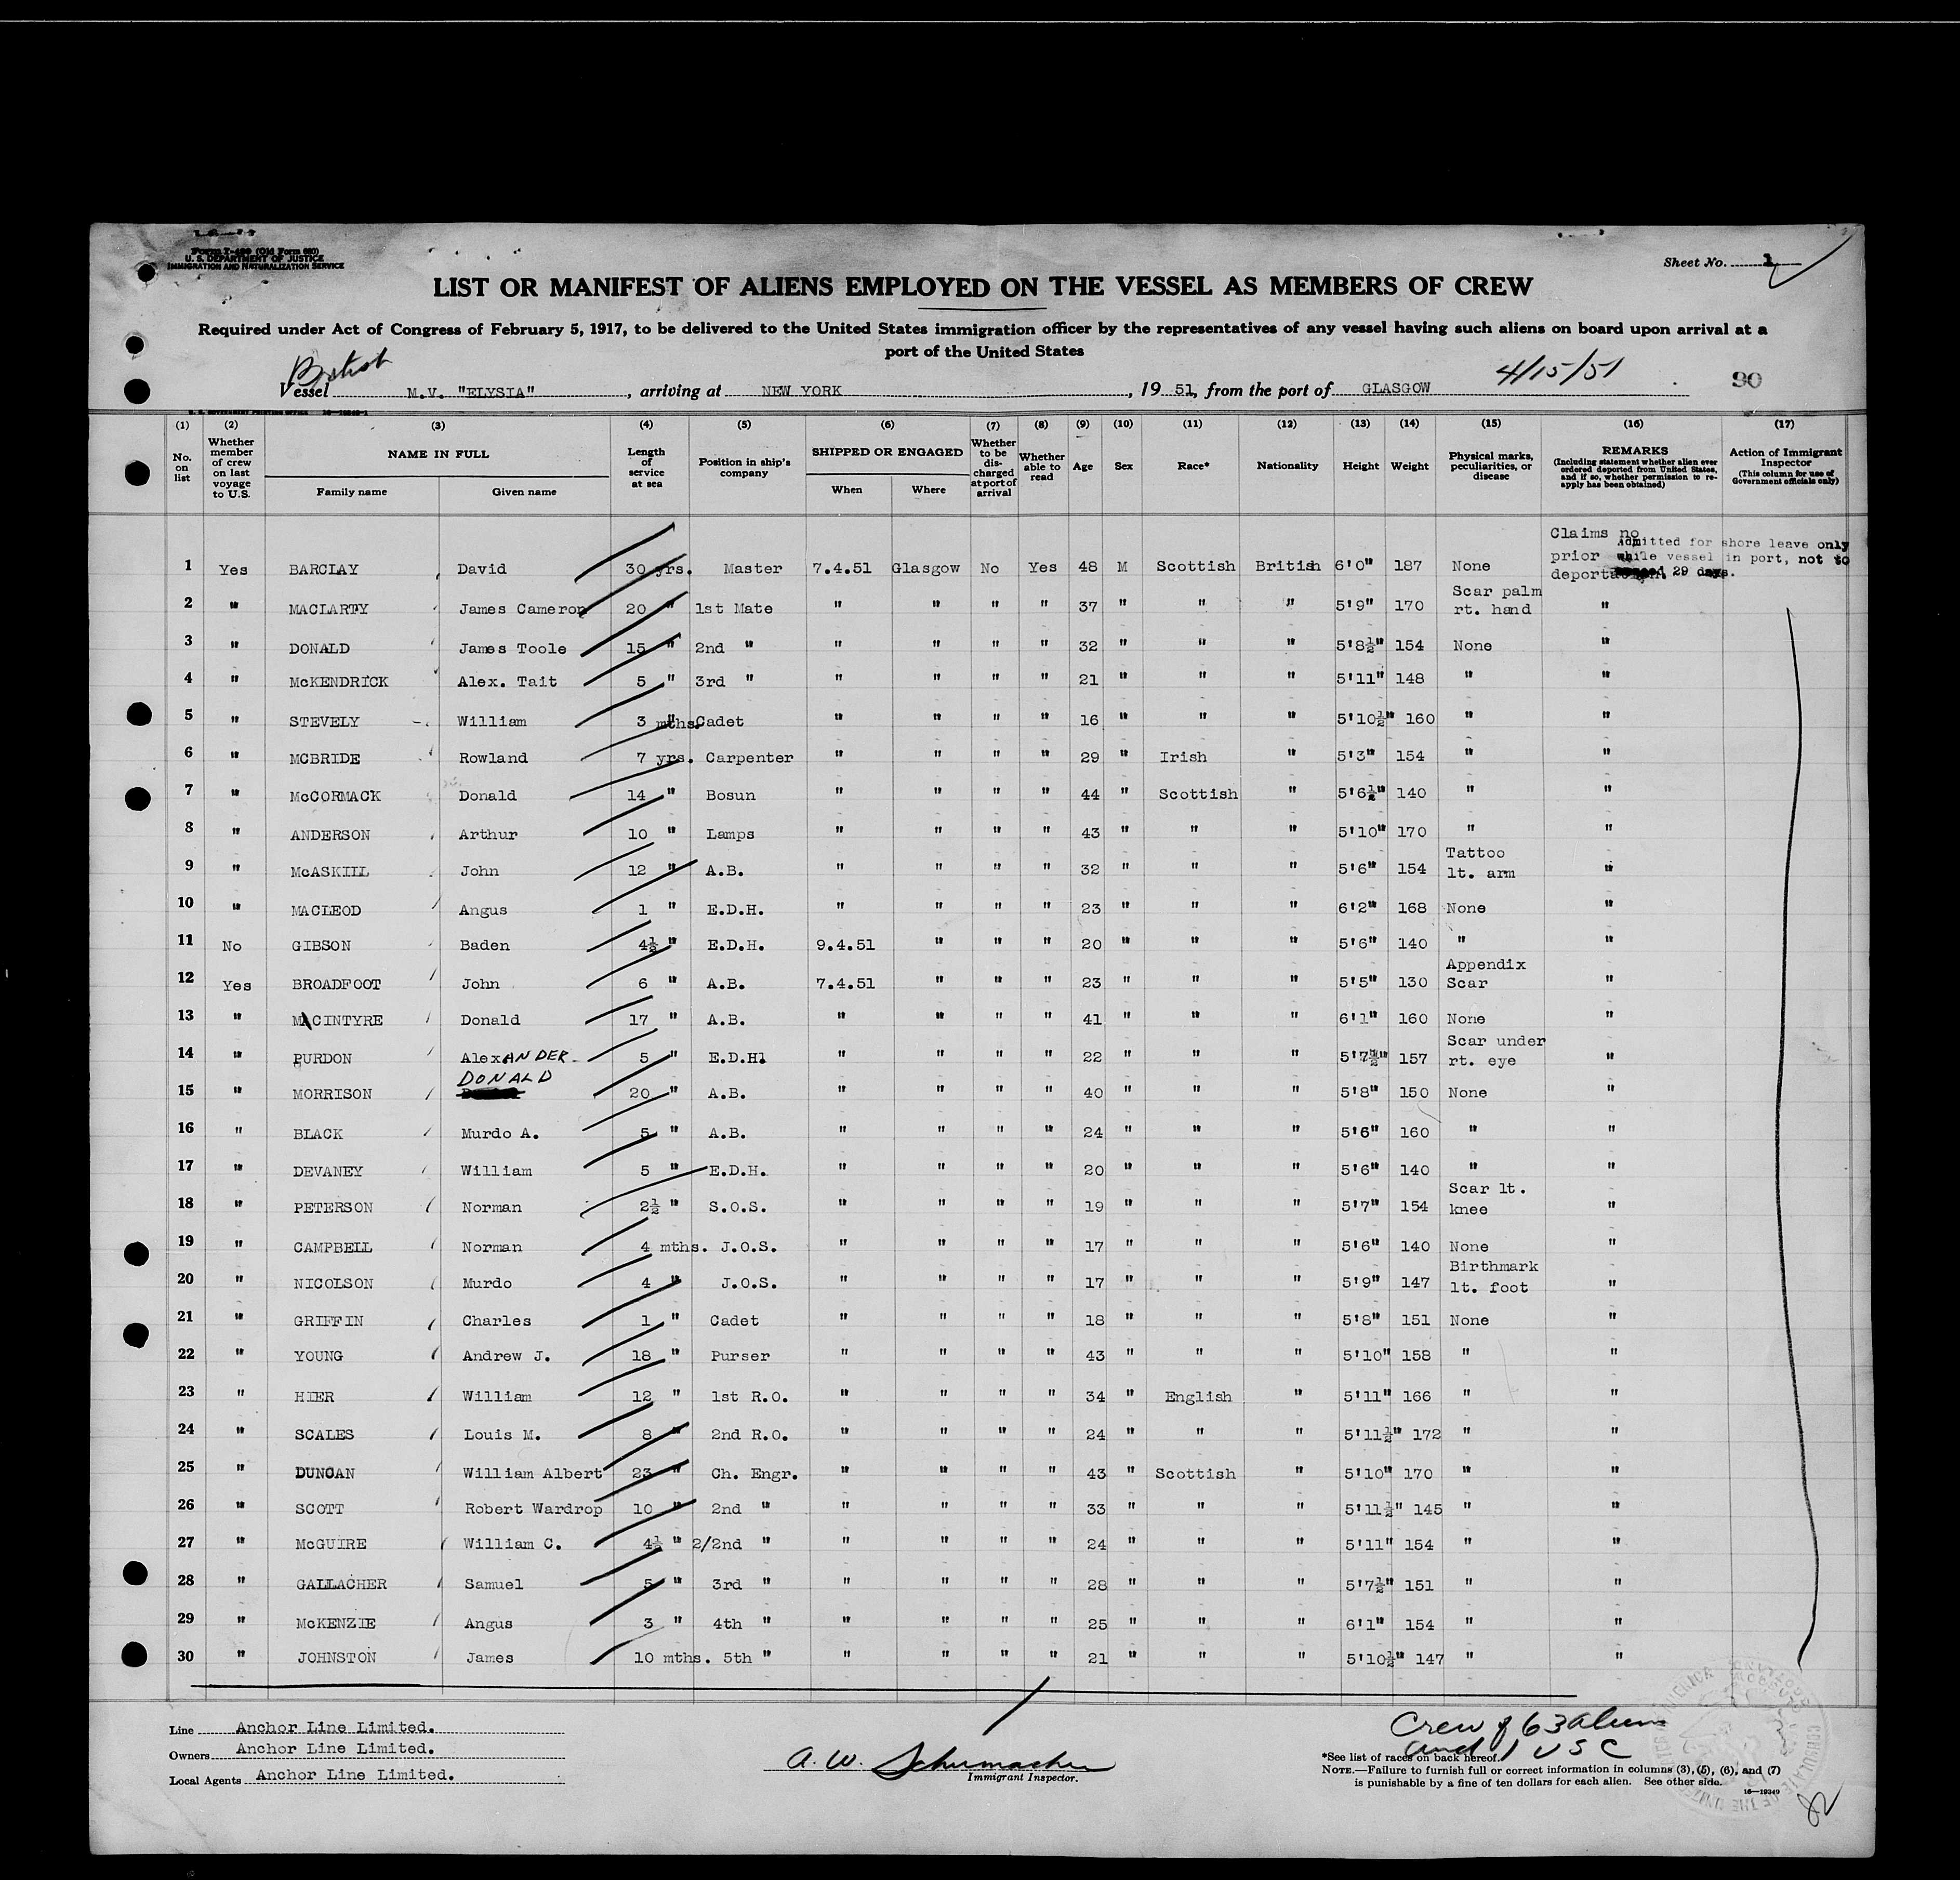 Form I-480 (Old Form 680)
U. S. DEPARTMENT OF JUSTICE
IMMIGRATION AND NATURALIZATION SERVICE
Sheet No. 1
LIST OR MANIFEST OF ALIENS EMPLOYED ON THE VESSEL AS MEMBERS OF CREW
Required under Act of Congress of February 5, 1917, to be delivered to the United States immigration officer by the representatives of any vessel having such aliens on board upon arrival at a
port of the United States
British
4/15/51
90
Vessel M.V. "ELYSIA", arriving at NEW YORK, 19 51, from the port of GLASGOW
(1) No. on list
(2) Whether member of crew on last voyage to U.S.
(3) NAME IN FULL
Family name Given name
(4) Length of service at sea
(5) Position in ship's company
(6) SHIPPED OR ENGAGED
When Where
(7) Whether to be discharged at port of arrival
(8) Whether able to read
(9) Age
(10) Sex
(11) Race*
(12) Nationality
(13) Height
(14) Weight
(15) Physical marks, peculiarities, or disease
(16) REMARKS
(Including statement whether alien ever ordered deported from United States, and if so, whether permission to re-apply has been obtained)
(17) Action of Immigrant Inspector
(This column for use of Government officials only)
Admitted for shore leave only
while vessel in port, not to
29 days.
1 Yes BARCLAY David 30 yrs. Master 7.4.51 Glasgow No Yes 48 M Scottish British 6'0" 187 None Claims no prior deportation.
2 " MACLARTY James Cameron 20 " 1st Mate " " " " 37 " " " 5'9" 170 Scar palm rt. hand "
3 " DONALD James Toole 15 " 2nd " " " " " 32 " " " 5'8½" 154 None "
4 " McKENDRICK Alex. Tait 5 " 3rd " " " " " 21 " " " 5'11" 148 " "
5 " STEVELY William 3 mths. Cadet " " " " 16 " " " 5'10½" 160 " "
6 " MCBRIDE Rowland 7 yrs. Carpenter " " " " 29 " Irish " 5'3" 154 " "
7 " McCORMACK Donald 14 " Bosun " " " " 44 " Scottish " 5'6½" 140 " "
8 " ANDERSON Arthur 10 " Lamps " " " " 43 " " " 5'10" 170 " "
9 " McASKILL John 12 " A.B. " " " " 32 " " " 5'6" 154 Tattoo lt. arm "
10 " MACLEOD Angus 1 " E.D.H. " " " " 23 " " " 6'2" 168 None "
11 No GIBSON Baden 4½ " E.D.H. 9.4.51 " " " 20 " " " 5'6" 140 " "
12 Yes BROADFOOT John 6 " A.B. 7.4.51 " " " 23 " " " 5'5" 130 Appendix Scar "
13 " MACINTYRE Donald 17 " A.B. " " " " 41 " " " 6'1" 160 None "
14 " PURDON AlexANDER 5 " E.D.Hl " " " " 22 " " " 5'7½" 157 Scar under rt. eye "
15 " MORRISON DONALD 20 " A.B. " " " " 40 " " " 5'8" 150 None "
16 " BLACK Murdo A. 5 " A.B. " " " " 24 " " " 5'6" 160 " "
17 " DEVANEY William 5 " E.D.H. " " " " 20 " " " 5'6" 140 " "
18 " PETERSON Norman 2½ " S.O.S. " " " " 19 " " " 5'7" 154 Scar lt. knee "
19 " CAMPBELL Norman 4 mths. J.O.S. " " " " 17 " " " 5'6" 140 None "
20 " NICOLSON Murdo 4 " J.O.S. " " " " 17 " " " 5'9" 147 Birthmark lt. foot "
21 " GRIFFIN Charles 1 " Cadet " " " " 18 " " " 5'8" 151 None "
22 " YOUNG Andrew J. 18 " Purser " " " " 43 " " " 5'10" 158 " "
23 " HIER William 12 " 1st R.O. " " " " 34 " English " 5'11" 166 " "
24 " SCALES Louis M. 8 " 2nd R.O. " " " " 24 " " " 5'11½" 172 " "
25 " DUNCAN William Albert 23 " Ch. Engr. " " " " 43 " Scottish " 5'10" 170 " "
26 " SCOTT Robert Wardrop 10 " 2nd " " " " " 33 " " " 5'11½" 145 " "
27 " McGUIRE William C. 4½ " 2/2nd " " " " " 24 " " " 5'11" 154 " "
28 " GALLACHER Samuel 5 " 3rd " " " " " 28 " " " 5'7½" 151 " "
29 " McKENZIE Angus 3 " 4th " " " " " 25 " " " 6'1" 154 " "
30 " JOHNSTON James 10 mths. 5th " " " " " 21 " " " 5'10½" 147 " "
Line Anchor Line Limited.
Owners Anchor Line Limited.
Local Agents Anchor Line Limited.
A. W. Schumacher
Immigrant Inspector.
Crew of 63 aliens
and 1 USC
*See list of races on back hereof.
NOTE.—Failure to furnish full or correct information in columns (3), (5), (6), and (7)
is punishable by a fine of ten dollars for each alien. See other side.
16—19349